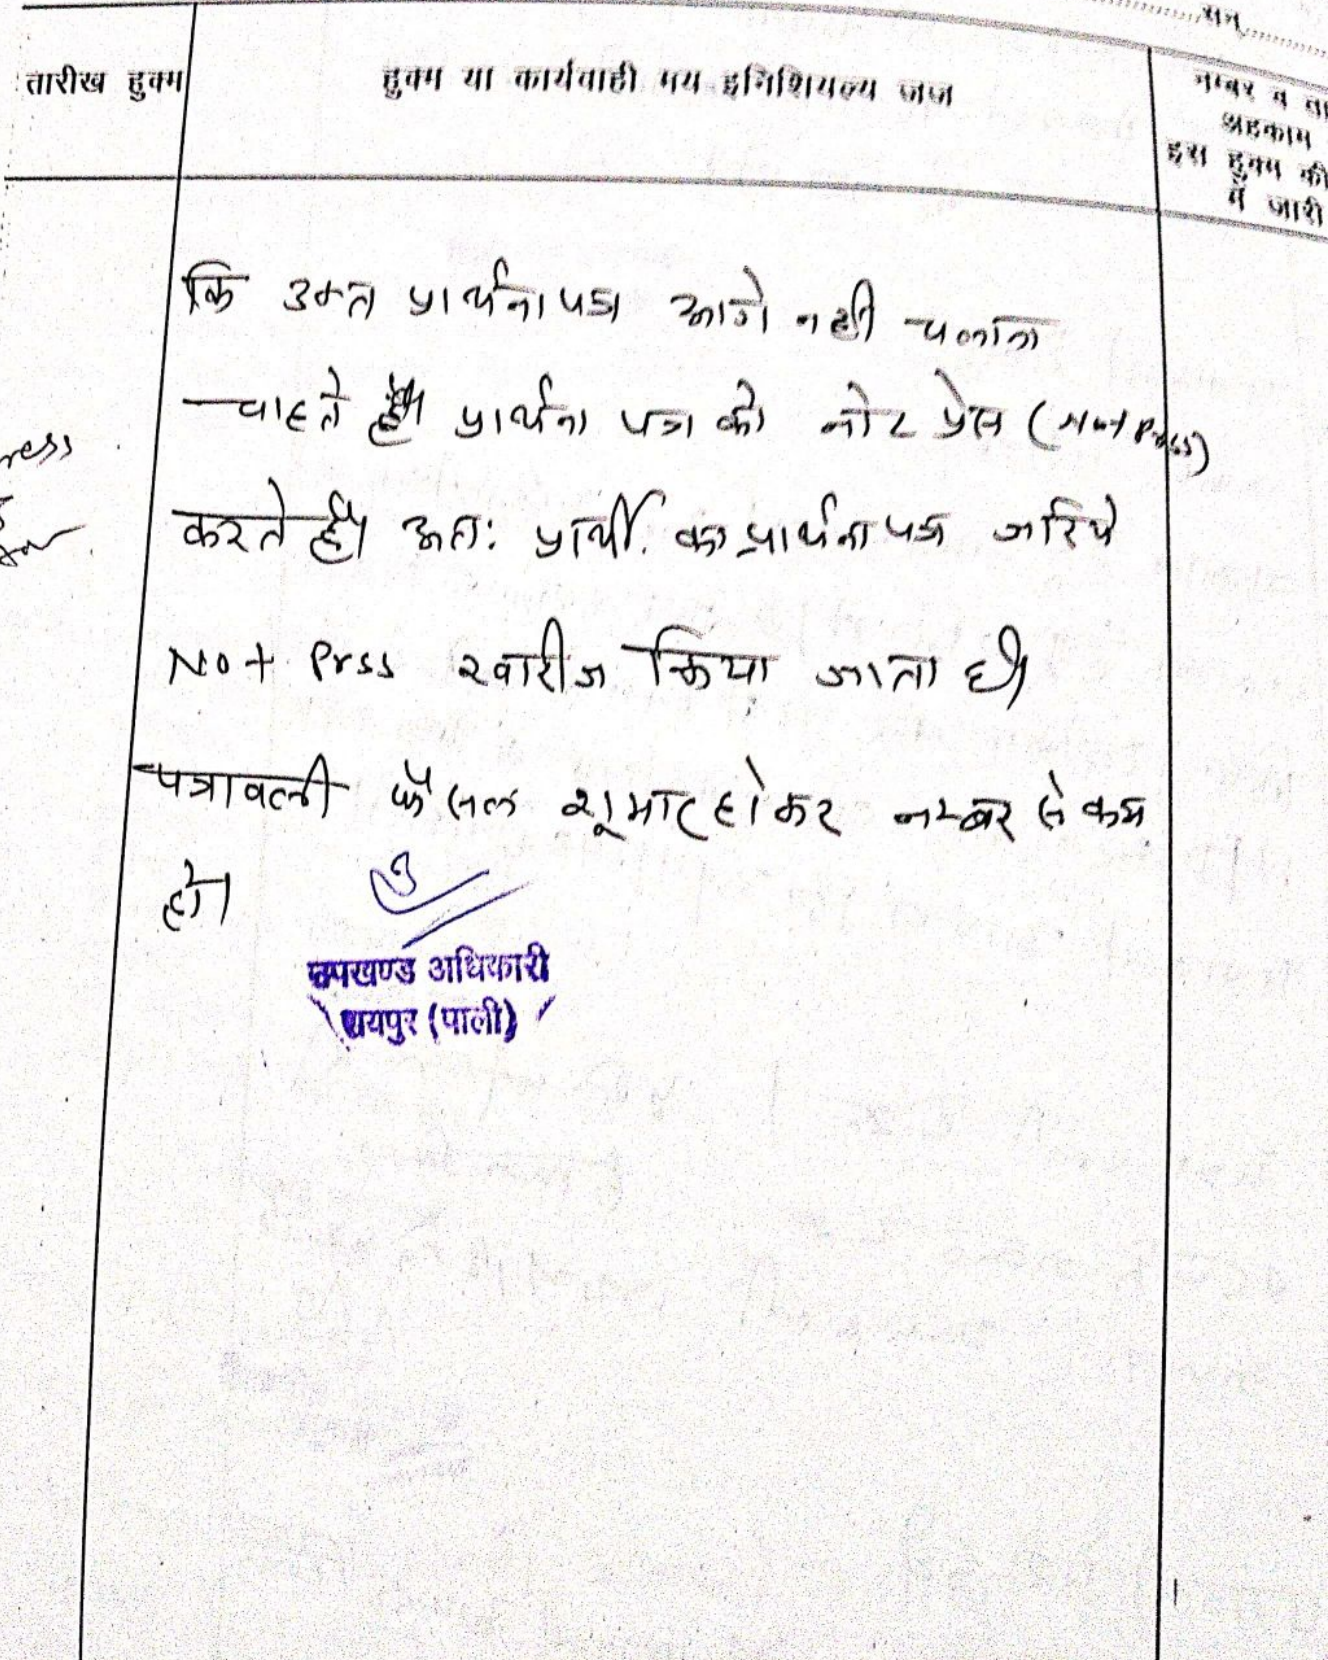 सन्
तारीख हुक्म
हुक्म या कार्यवाही मय इनिशियल्य जज
नम्बर व ता
अहकाम
इस हुक्म की
में जारी
कि उक्त प्रार्थना पत्र आगे नही चलाना
चाहते है। प्रार्थना पत्र को नोट प्रेस (Not Press)
करते है। अतः प्रार्थी. का प्रार्थना पत्र जरिये
Not Prss खारीज किया जाता है।
पत्रावली फैसल शूमार होकर नम्बर से कम
हो।
उपखण्ड अधिकारी
रायपुर (पाली)
ress